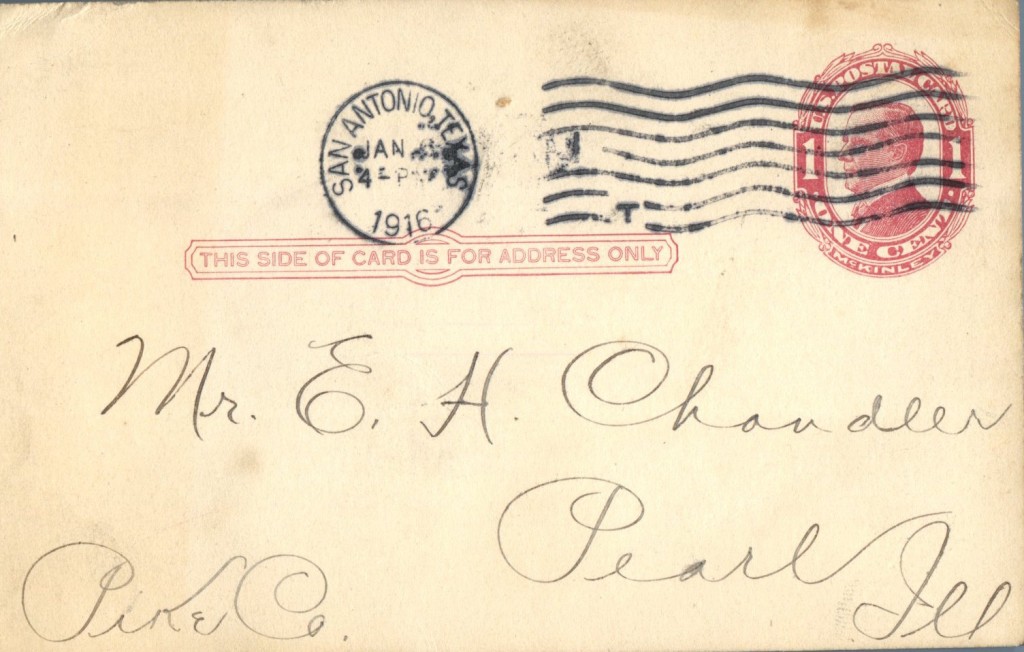 SAN ANTONIO, TEXAS
JAN
4-P
1916
U.S. POSTAL CARD
1 1
ONE CENT
McKINLEY
THIS SIDE OF CARD IS FOR ADDRESS ONLY
Mr. E. H. Chandler
Pearl Ill
Pike Co.